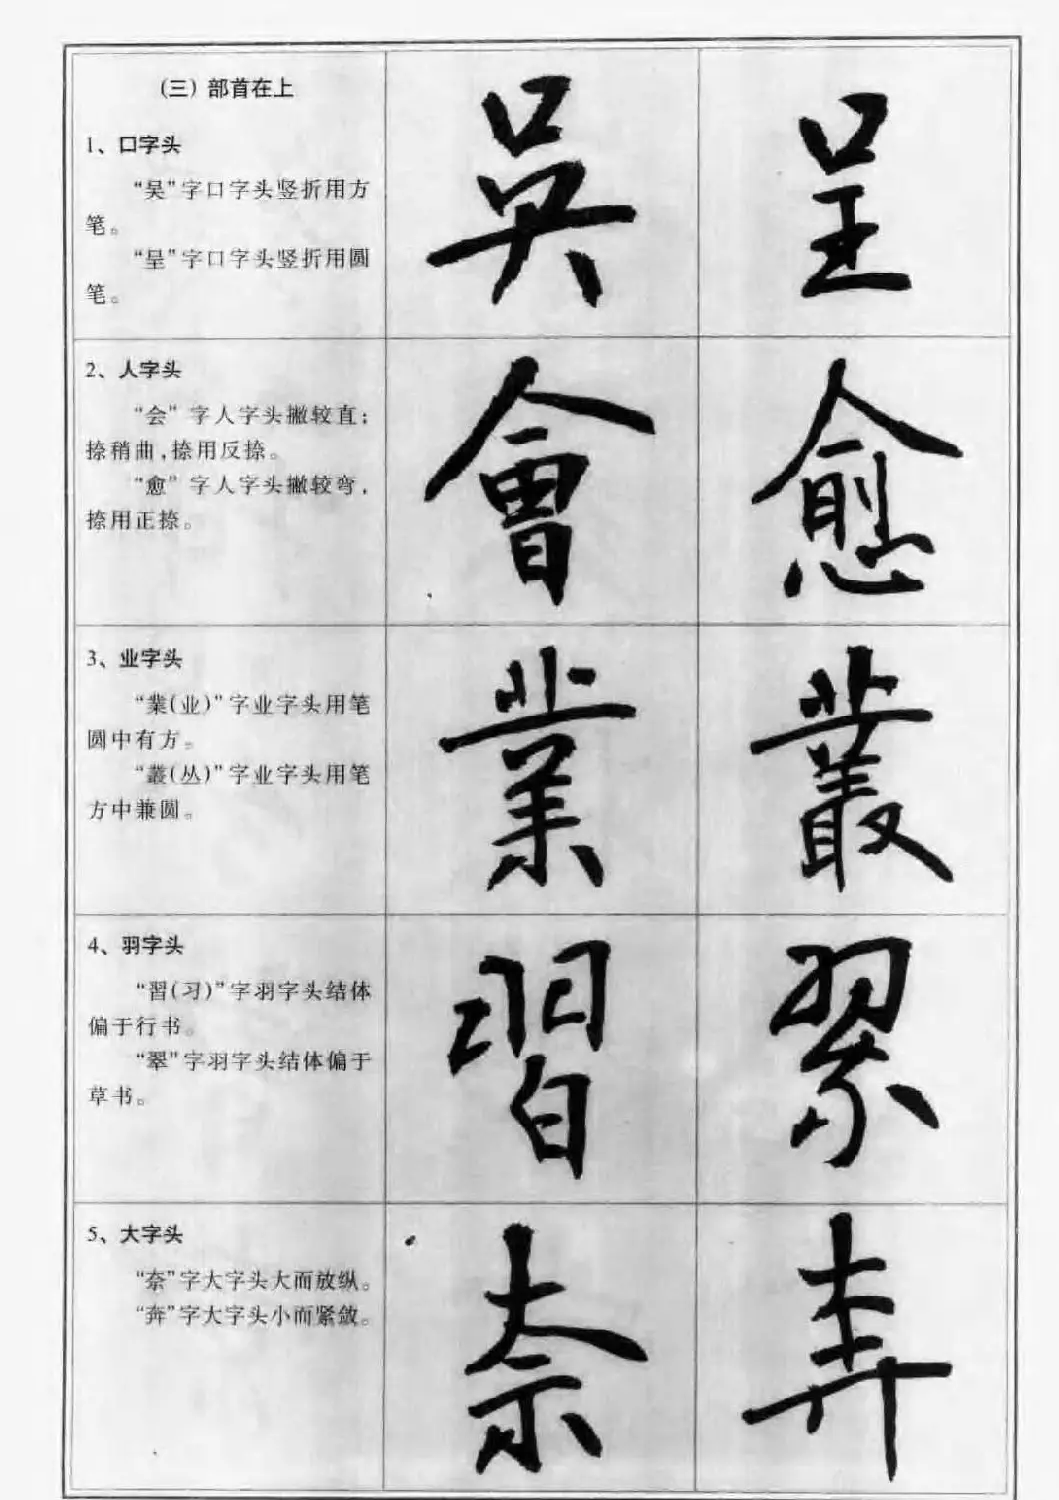 (三) 部首在上
1、口字头
“吴”字口字头竖折用方
笔。
“呈”字口字头竖折用圆
笔。
吳 呈
2、人字头
“会”字人字头撇较直;
捺稍曲,捺用反捺。
“愈”字人字头撇较弯,
捺用正捺。
會 愈
3、业字头
“業(业)”字业字头用笔
圆中有方。
“叢(丛)”字业字头用笔
方中兼圆。
業 叢
4、羽字头
“習(习)”字羽字头结体
偏于行书。
“翠”字羽字头结体偏于
草书。
習
5、大字头
“奈”字大字头大而放纵。
“奔”字大字头小而紧敛。
奈 奔